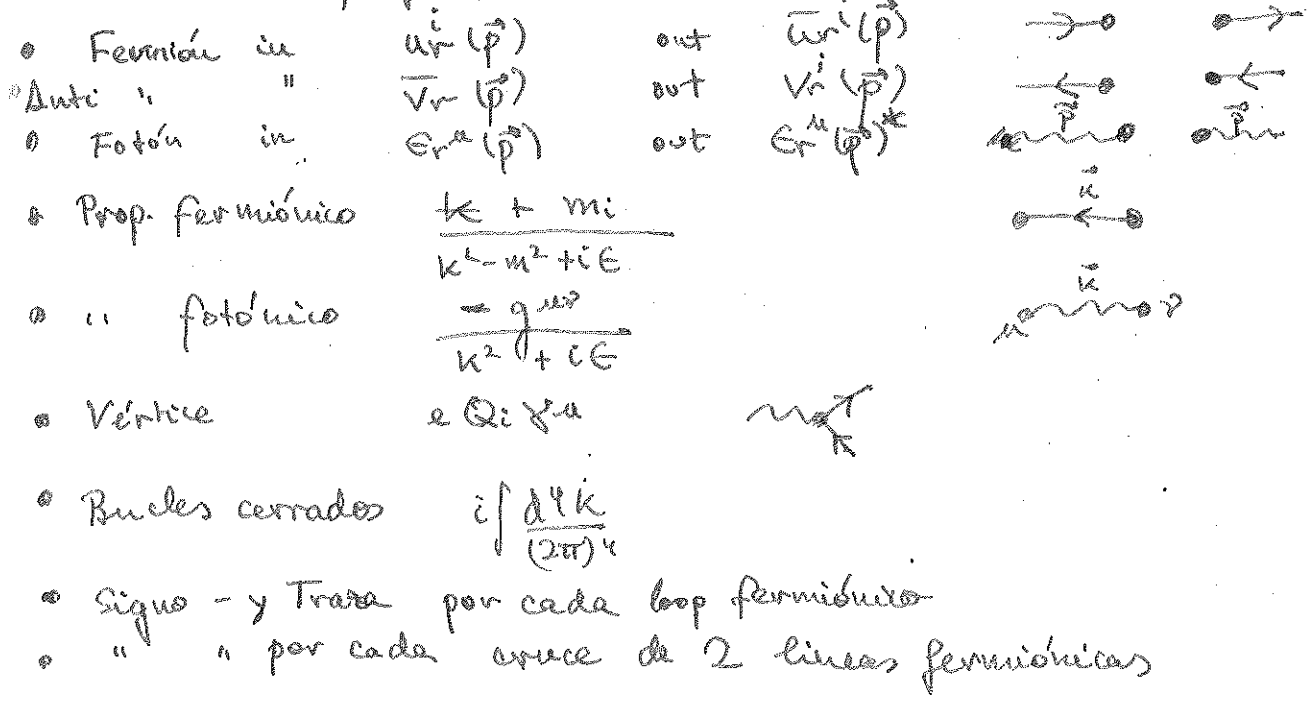 • Fermión in $u_r^i(\vec{p})$ out $\overline{u}_r^i(\vec{p})$
• Anti " " $\overline{v}_r(\vec{p})$ out $v_r^i(\vec{p})$
• Fotón in $\epsilon_r^\mu(\vec{p})$ out $\epsilon_r^\mu(\vec{p})^*$ $\mu$ $\vec{p}$ $\vec{p}$
• Prop. fermiónico $\frac{\not{k} + m_i}{k^2 - m^2 + i\epsilon}$ $\vec{k}$
• " fotónico $\frac{-g^{\mu\nu}}{k^2 + i\epsilon}$ $\mu$ $\vec{k}$ $\nu$
• Vértice $e Q_i \gamma^\mu$
• Bucles cerrados $i \int \frac{d^4k}{(2\pi)^4}$
• Signo - y Traza por cada loop fermiónico
• " " por cada cruce de 2 líneas fermiónicas